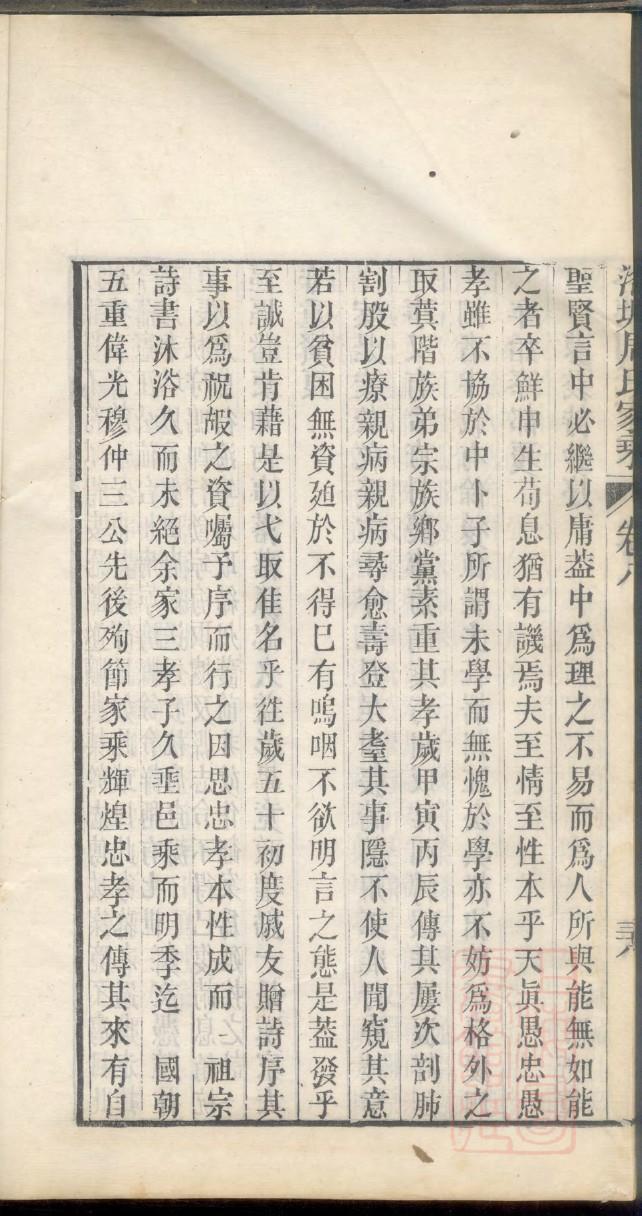 周氏家乘
卷八
聖賢言中必繼以庸葢中爲理之不易而爲人所與能無如能
之者卒鮮申生荀息猶有譏焉夫至情至性本乎天眞愚忠愚
孝雖不協於中卜子所謂未學而無愧於學亦不妨爲格外之
取蓂階族弟宗族鄉黨素重其孝歲甲寅丙辰傳其屢次剖肺
割股以療親病親病尋愈壽登大耋其事隱不使人聞窺其意
若以貧困無資廹於不得巳有嗚咽不欲明言之態是葢發乎
至誠豈肯藉是以弋取佳名乎徃歲五十初度戚友贈詩序其
事以爲祝嘏之資囑予序而行之因思忠孝本性成而 祖宗
詩書沐浴久而未絕余家三孝子久埀邑乘而明季迄 國朝
五重偉光穆仲三公先後殉節家乘輝煌忠孝之傳其來有自